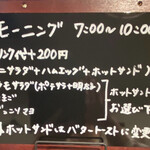 モーニング 7:00〜10:00
リンク付+200円
ニサラダ+ハムエッグ+ホットサンド
モサラダ(ポテサラ+明太子)
ホットサンド
たまご
お選び下
ジューシソマヨ
ホットサンドはバタートーストに変更